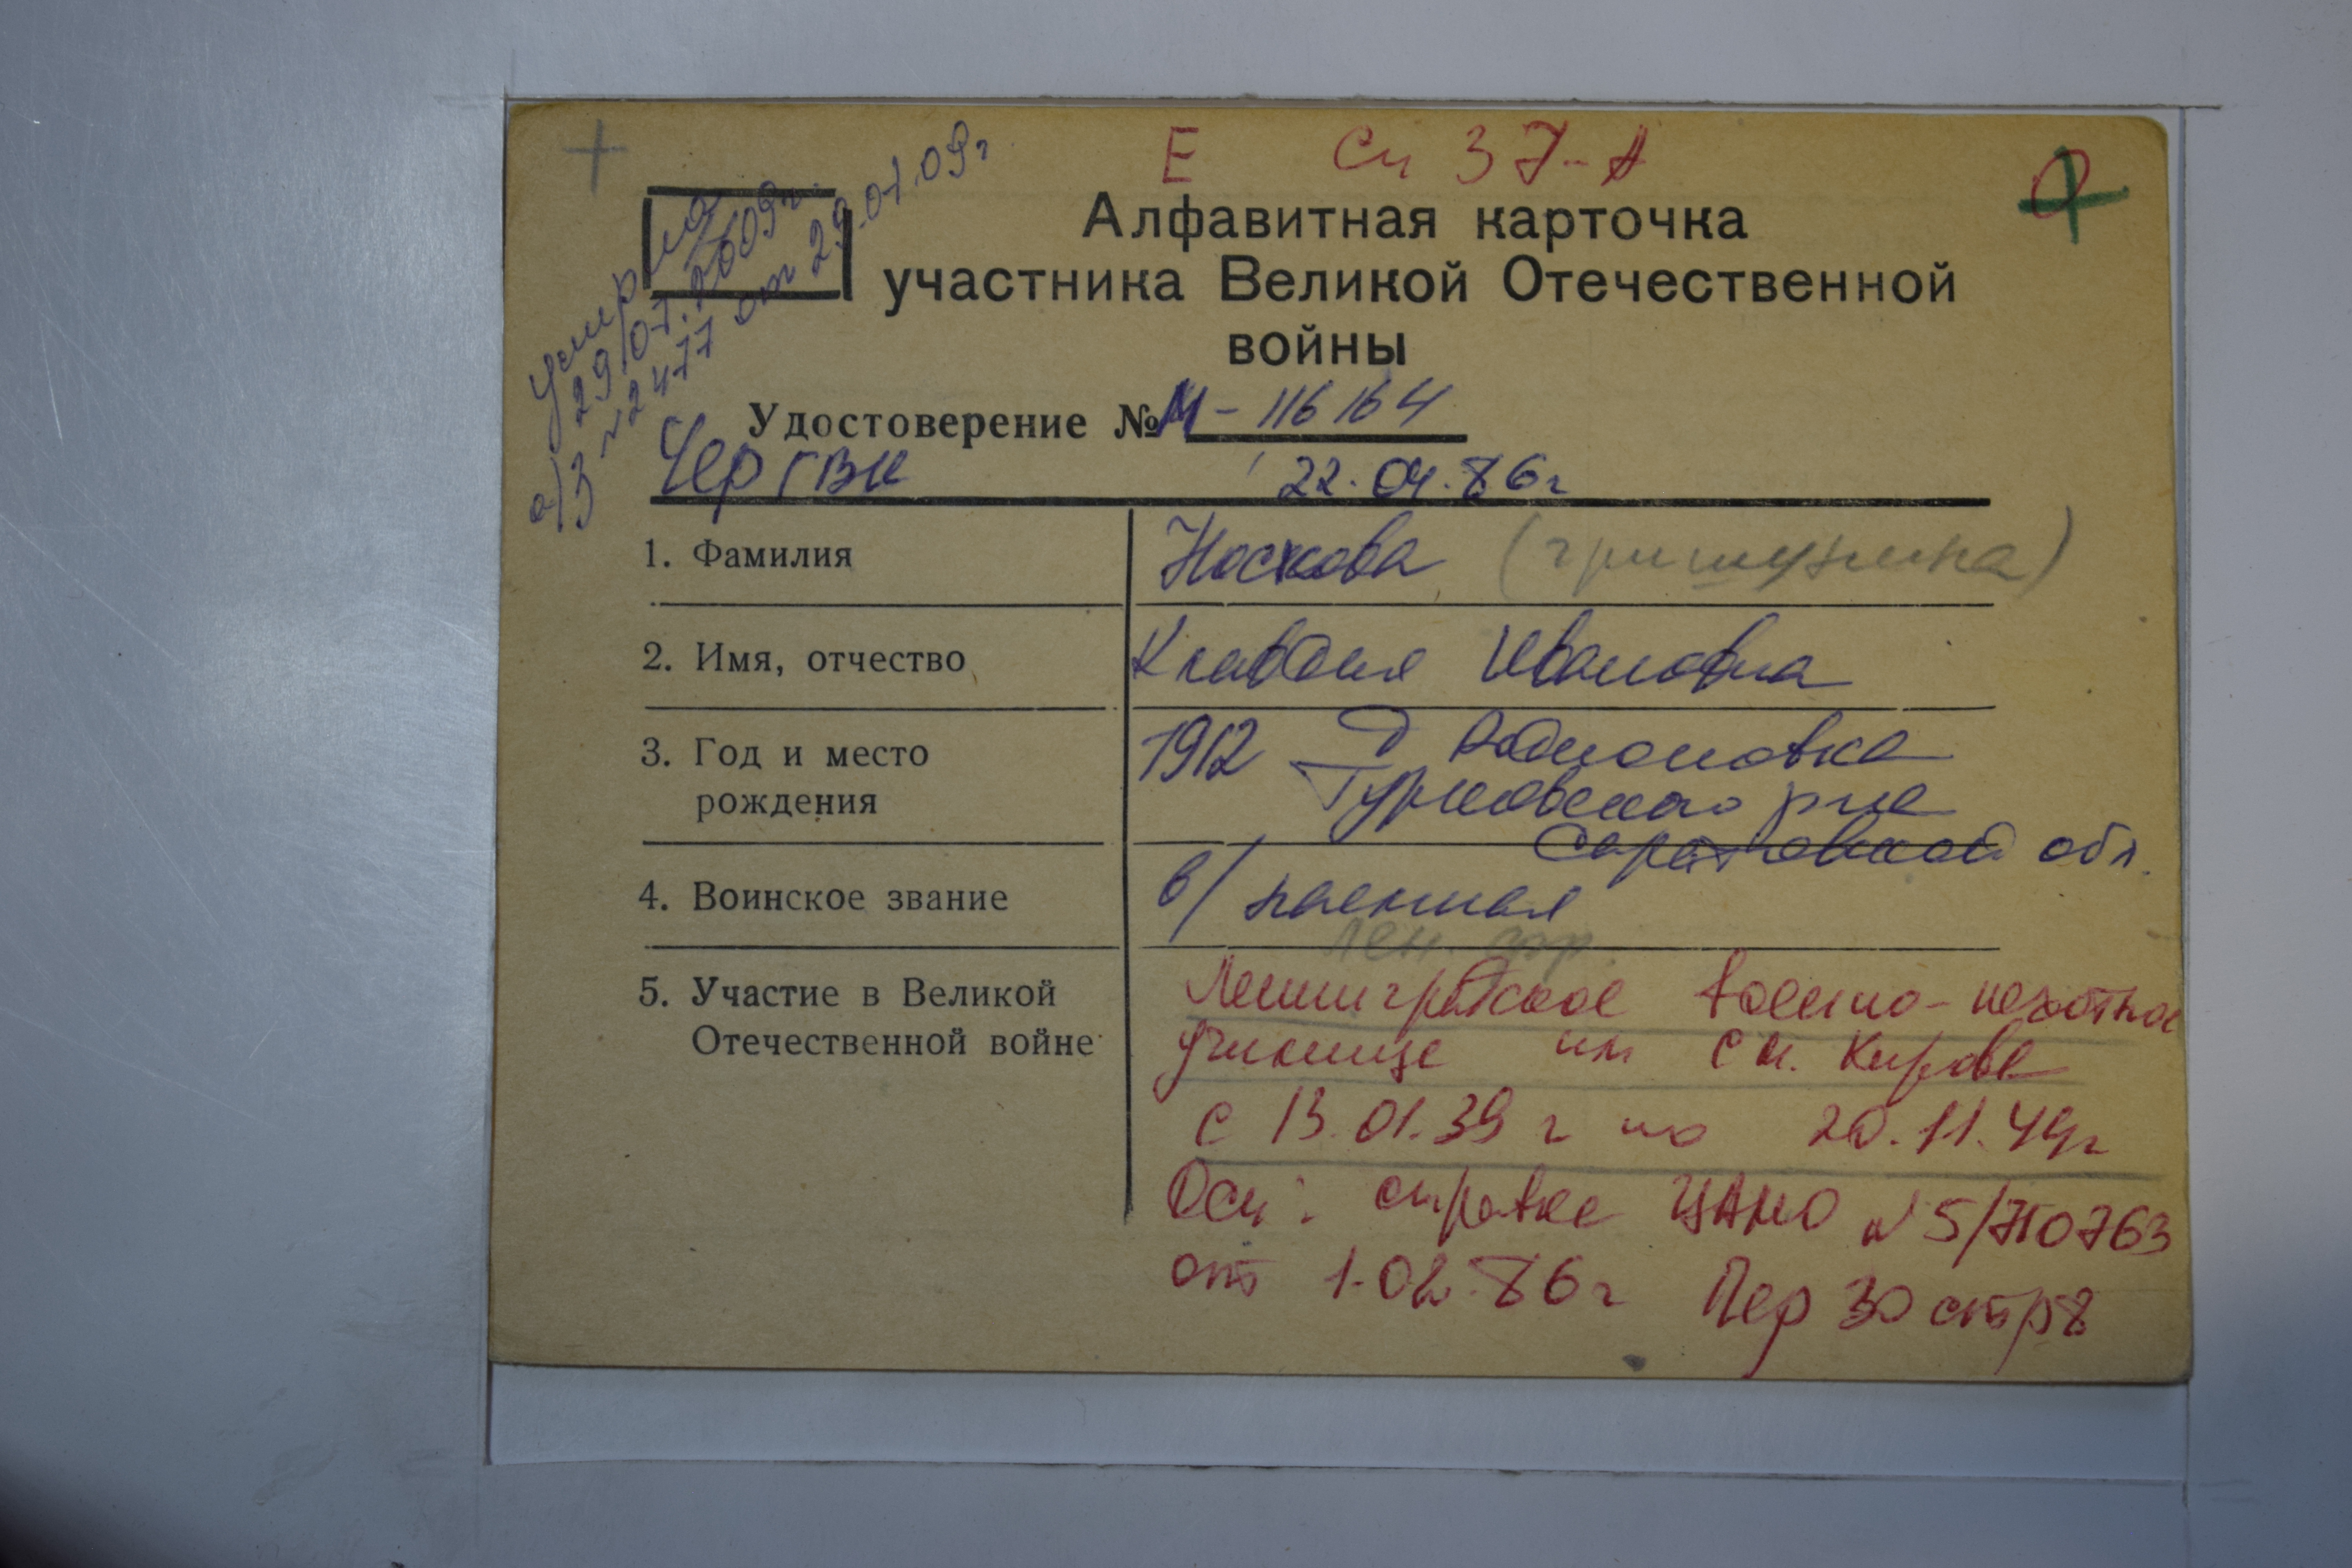 Е Сп 37-А
Алфавитная карточка
участника Великой Отечественной
войны
умерла
29/07.2009г.
а/з №2477 от 29.07.09г
Удостоверение № М-116164
Чер ГВК 22.04.86г
1. Фамилия Носкова
2. Имя, отчество Клавдия Ивановна
3. Год и место 1912 д Родионовка
рождения Турковского р-на
Саратовской обл.
4. Воинское звание в/наемная
Лен. фр.
5. Участие в Великой Ленинградское военно-пехотное
Отечественной войне училище им С М. Кирова
с 13.01.39 г по 20.11.44г
Осн: справка ЦАМО № 5/710763
от 1.02.86г Пер 30 стр 8